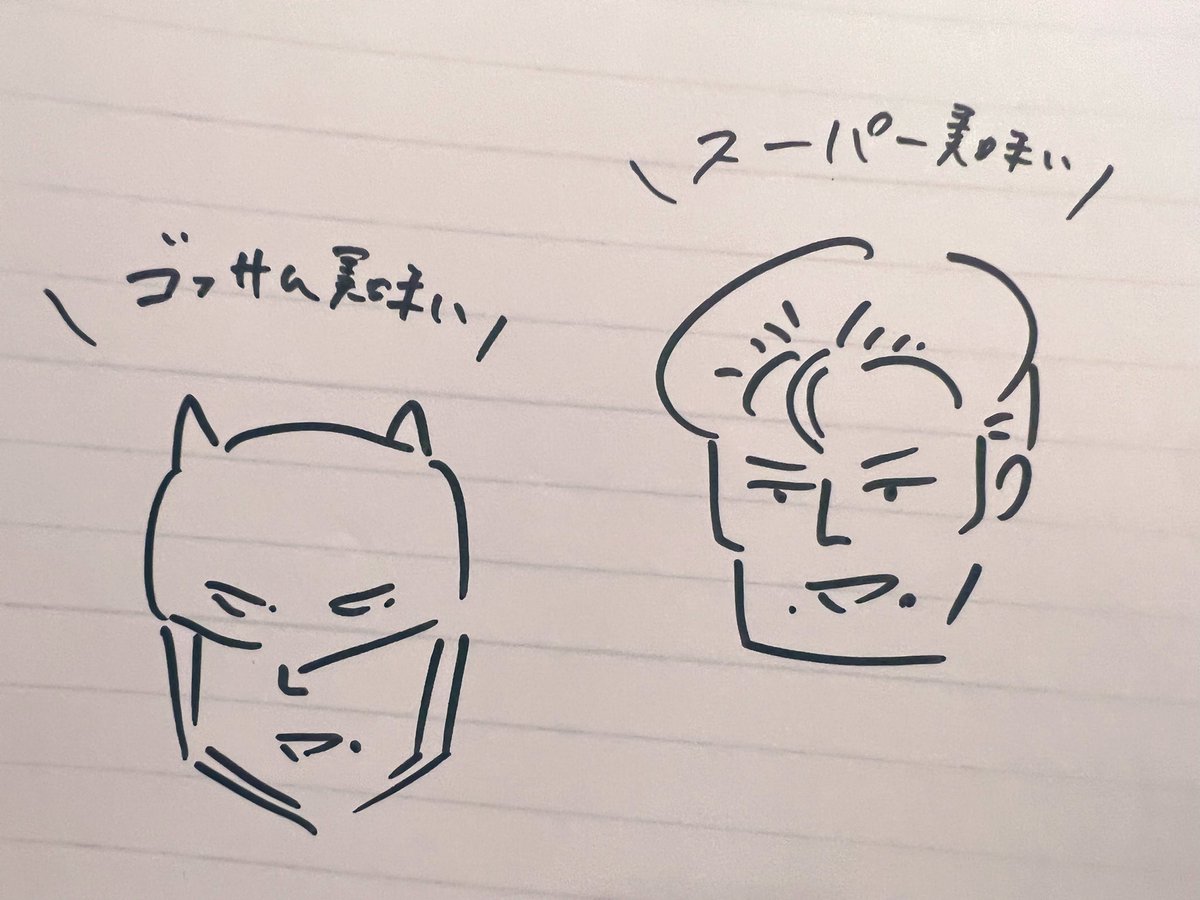 スーパー美味い
ゴッサム美味い